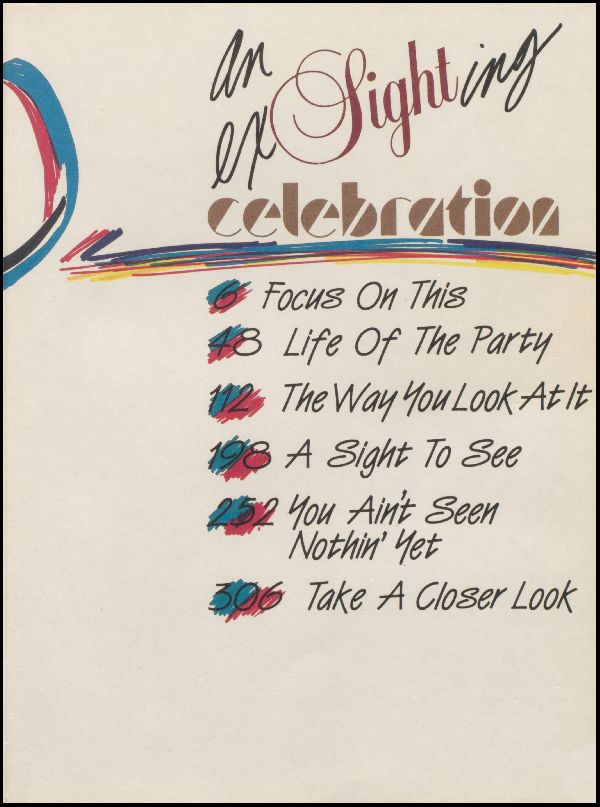 an
exSighting
celebration
6 Focus On This
48 Life Of The Party
112 The Way You Look At It
198 A Sight To See
252 You Ain't Seen
Nothin' Yet
306 Take A Closer Look